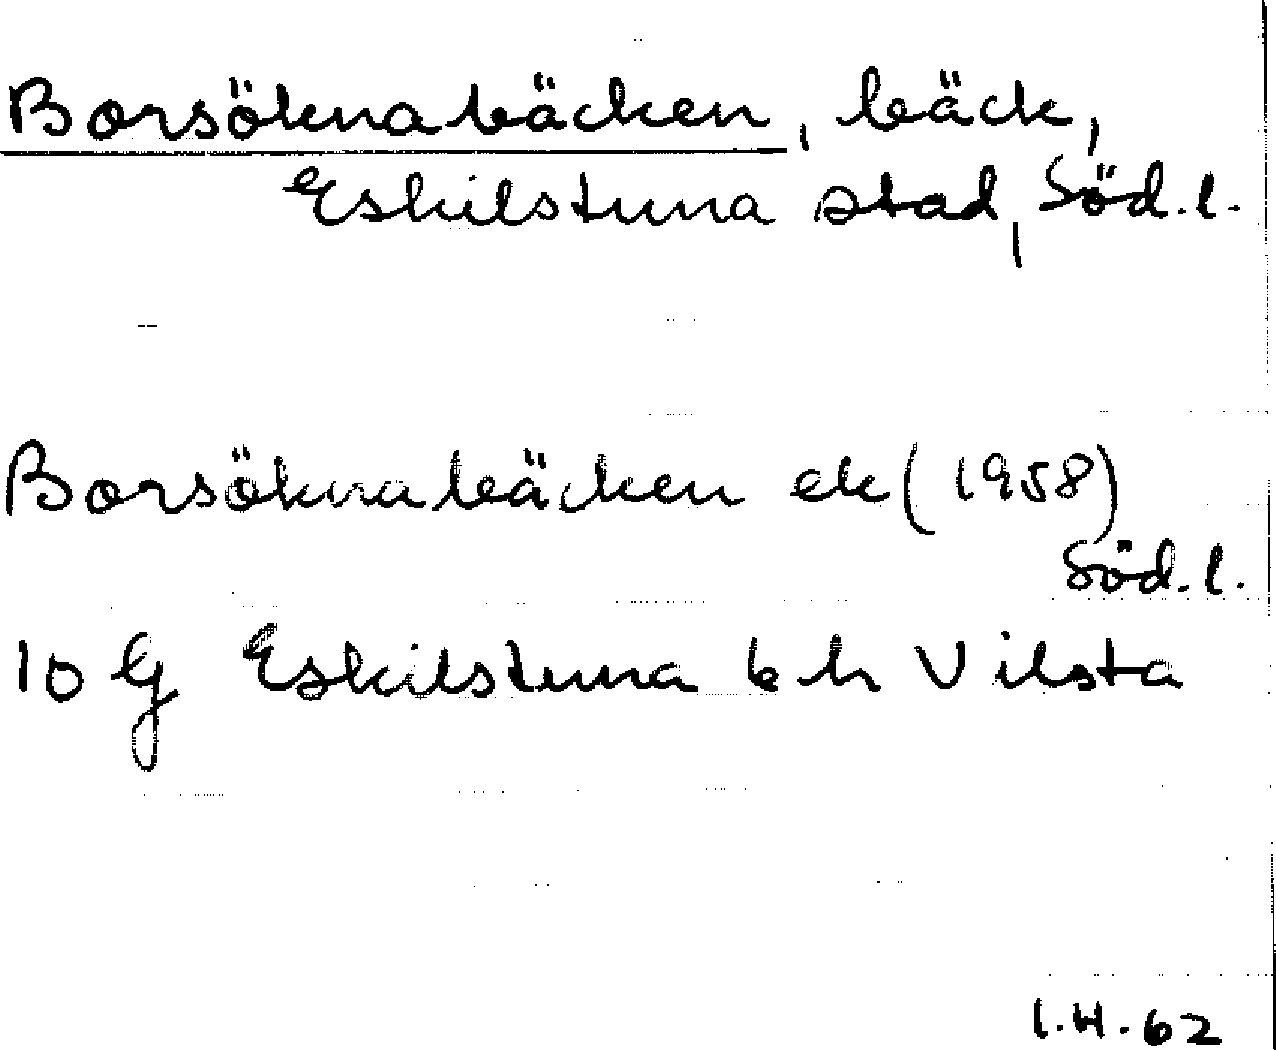 Borsöknabäcken, bäck,
Eskilstuna stad, Söd.l.
Borsöknabäcken ek (1958)
Söd.l.
10 G Eskilstuna bh Vilsta
I.H.62